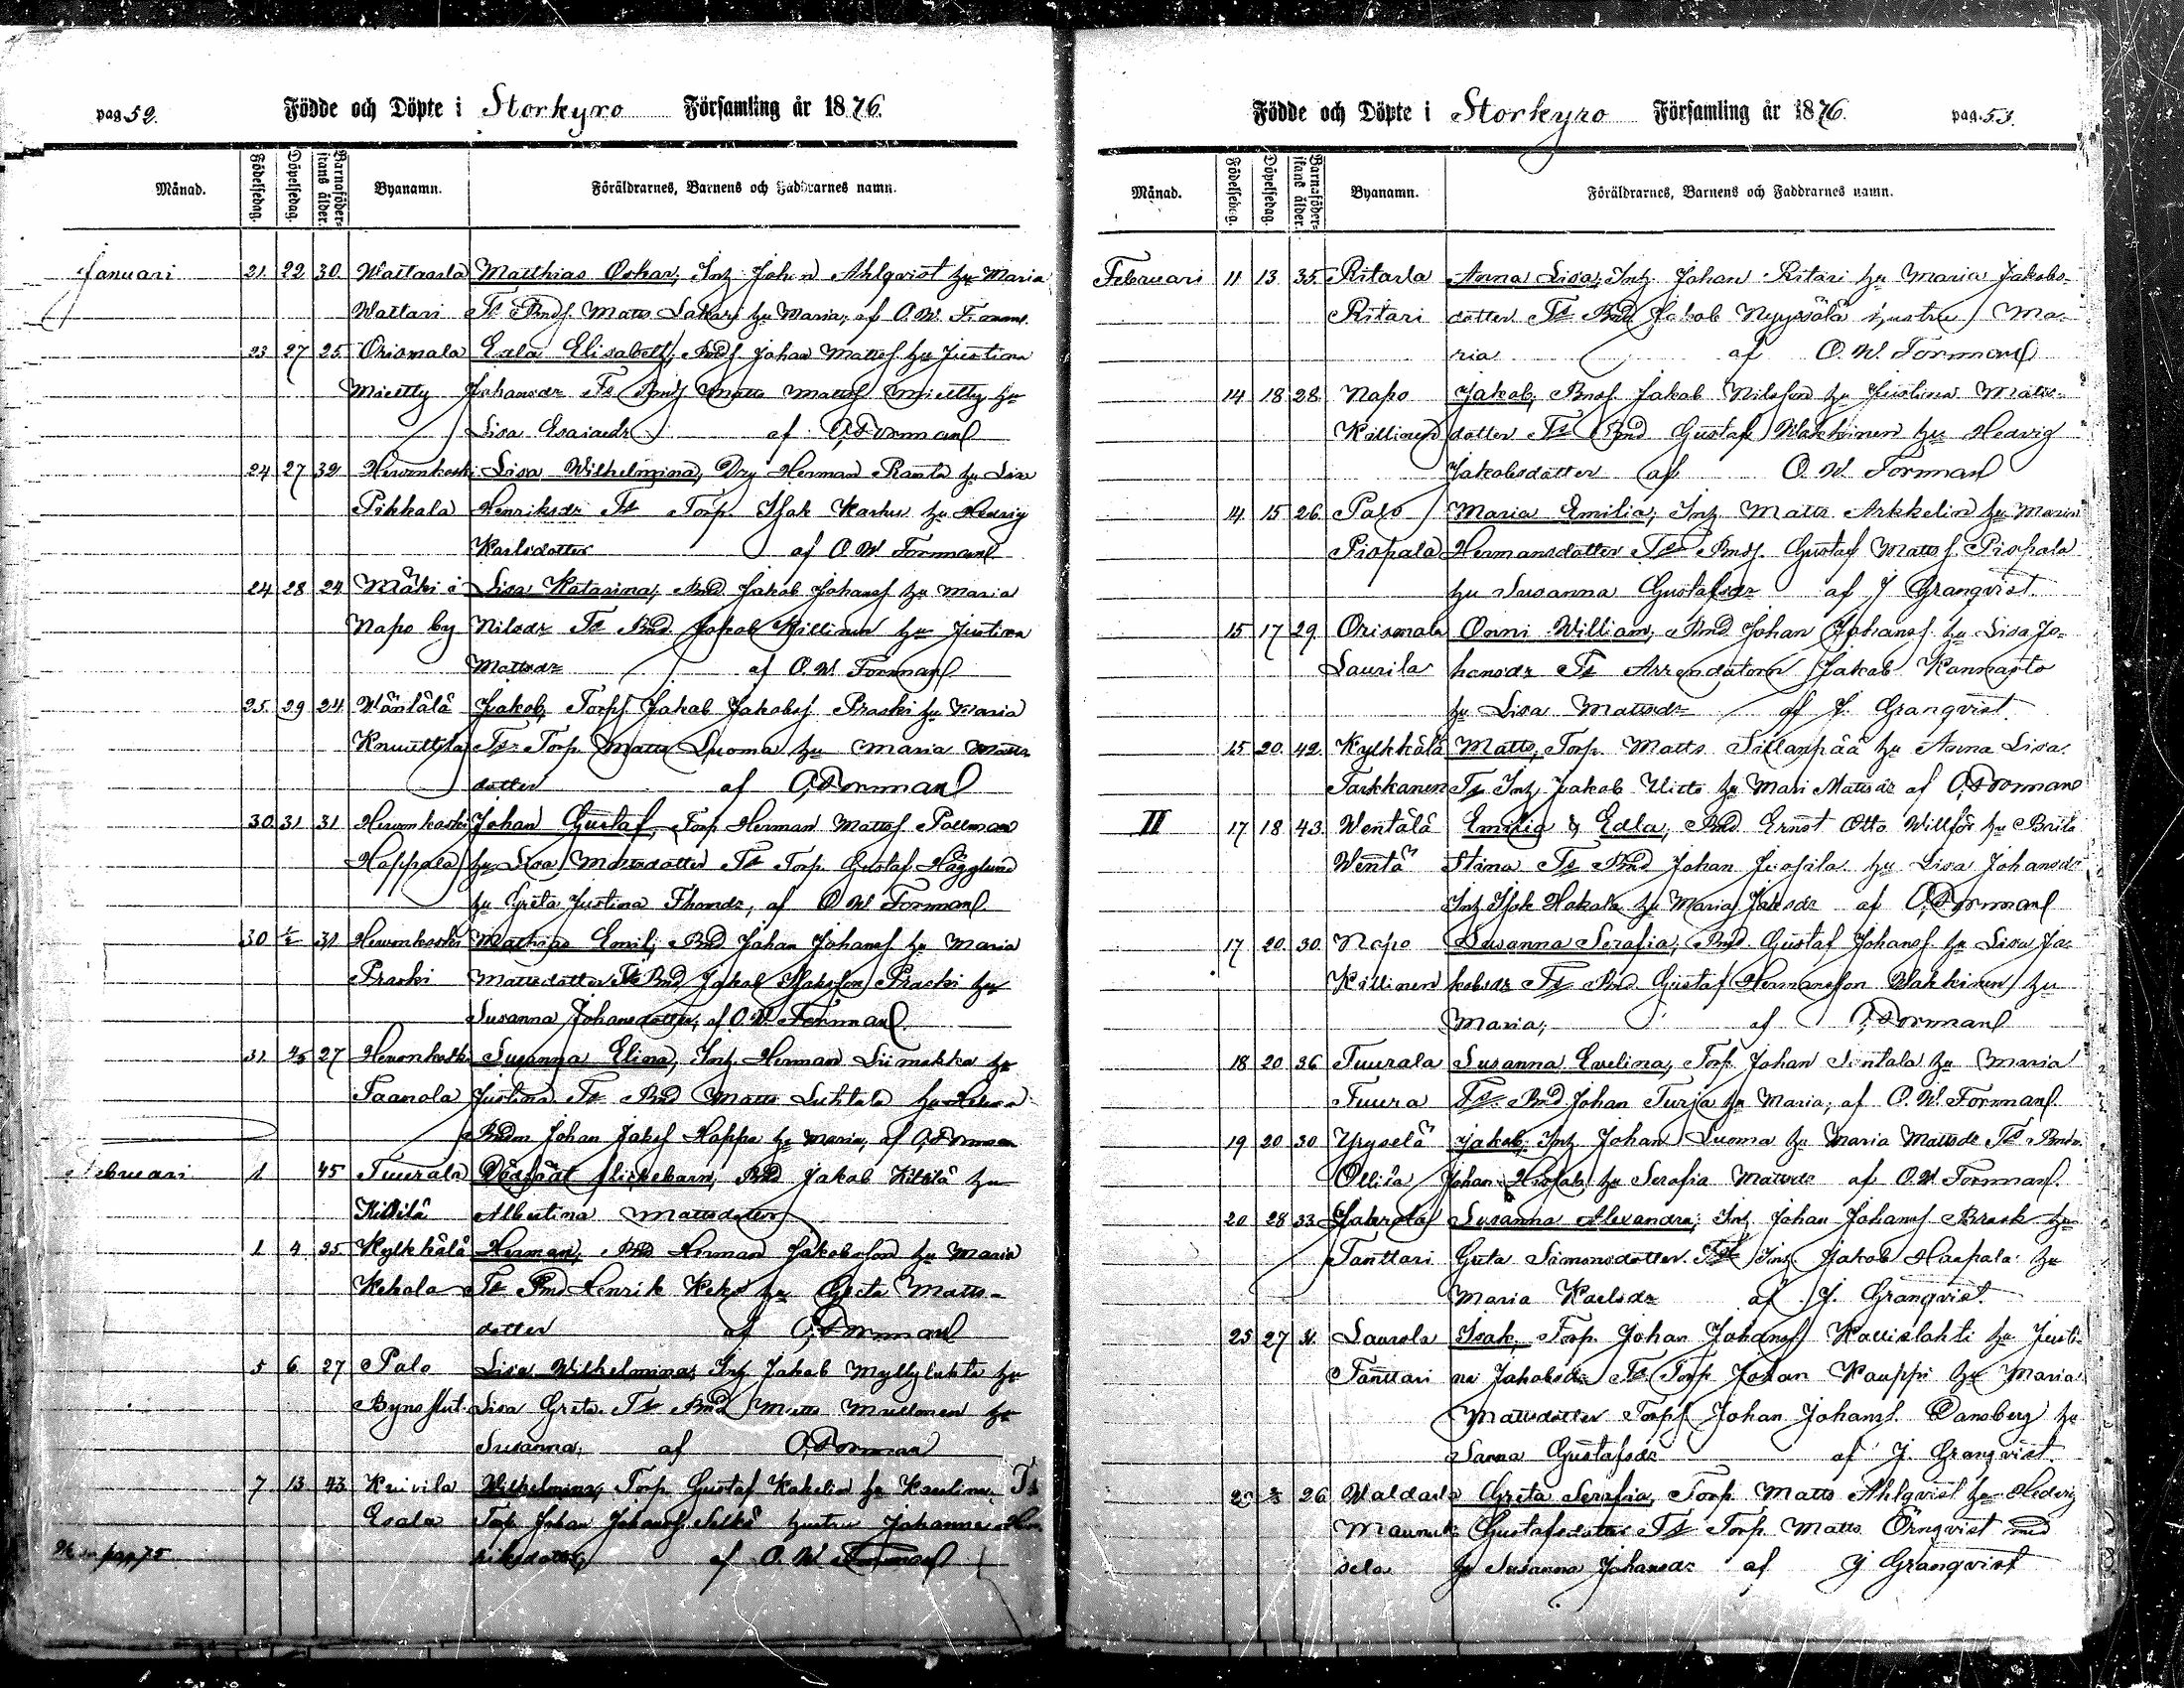 pag. 52. Födde och Döpte i Storkyro Församling år 1876.
Månad. Födelsedag. Döpelsedag. Barnaföderskans ålder. Byanamn. Föräldrarnes, Barnens och Faddrarnes namn.
Januari 21. 22 30. Wattaarla Matthias Oskar, Inh Johan Ahlqvist hu Maria
Wattari Ts Bnds. Matts Lakari hu Maria, af O. W. Forsman.
23 27 25 Orismala Edla Elisabeth, Bnds Johan Matts. hu Justina
Mietty Johansdr Ts Bnds Matts Matts Mietty hu
Lisa Esaiaedr af O Forsman
24 27 32 Herwonkoski Lisa Wilhelmina, Drg Herman Ranta hu Lisa
Pikkala Henriksdr Ts Torp. Isak Karhu hu Hedvig
Karlsdotter af O. W. Forsman
24 28 24 Mäki i Lisa Katarina, Bnd Jakob Johans. hu Maria
Napo by Nilsdr Ts Bnd Jakob Killinen hu Justina
Mattsdr af O. W. Forsman
25. 29 24 Wäntälä Jakob, Torps Jakob Jakobs. Praski hu Maria
Knuuttila Ts Torp. Matts Luoma hu Maria Matts
dotter af O Forsman
30 31 31 Herwonkoski Johan Gustaf, Torp Herman Matts. Pallman
Happala hu Lisa Mattsdotter Ts Torp. Gustaf Hägglund
hu Greta Justina Thomdr, af O W Forsman
30 ½ 31 Herwonkoski Mathias Emil, Bnd Johan Johans. hu Maria
Praski Mattsdotter Ts Bnd Jakob Isaksson Praski hu
Susanna Johansdotter, af O. W. Forsman
31 27 Herwonkoski Susanna Elina, Inh. Herman Liimakka hu
Taanola Justina Ts Bnd Matts Luhtala hu
Bndm Johan Jakobs Happa hu Maria, af O Forsman
Februari 1 45 Tuurala Dödfödt flickebarn, Bnd Jakob Kitilä hu
Kitilä Albertina Mattsdotter
1 4 35 Kylkkälä Herman, Bnd Herman Jakobsson hu Maria
Kehala Ts Bnd Henrik Keko hu Greta Matts-
dotter af O Forsman
5 6 27 Palo Lisa Wilhelmina, Inh Jakob Myllyluhta hu
Bynoslut. Lisa Greta. Ts Bnd Matts hu
Susanna, af O Forsman
7 13 43 Kuivila Wilhelmina, Torp. Gustaf Kakelin hu Karolina. Ts
Esala Torp. Johan Johans. Selkä hustru Johanna Hen
riksdotter af O. W. Forsman
pag. 75
Födde och Döpte i Storkyro Församling år 1876. pag. 53.
Månad. Födelsedag. Döpelsedag. Barnaföderskans ålder. Byanamn. Föräldrarnes, Barnens och Faddrarnes namn.
Februari 11 13 35. Ritarla Anna Lisa, Inh Johan Ritari hu Maria Jakobs-
Ritari dotter Ts Bnd Jakob Nyyssölä hustru Ma-
ria af O. W. Forsman
14 18 28 Napo Jakob, Bnds. Jakob Nilsson hu Justina Matts-
Källinen dotter Ts Bnd Gustaf Wakkinen hu Hedvig
Jakobsdotter af O. W. Forsman
14 15 26. Palo Maria Emilia, Inh Matts Arkkelin hu Maria
Piopala Hermansdotter Ts Bnds. Gustaf Matts. Piopala
hu Susanna Gustafsdr af J Granqvist.
15 17 29 Orismala Onni William, Bnd Johan Johans. hu Lisa Jo-
Laurila hansdr Ts Arrendatorn Jakob Kannasto
hu Lisa Mattsdr af J. Granqvist.
15 20. 42. Kylkkälä Matts, Torp. Matts Sillanpää hu Anna Lisa.
Tarkkanen Ts Inh Jakob Uitto hu Mari Mattsdr af O Forsman
II 17 18 43. Wentälä Emilia & Edla, Bnd. Ernst Otto Willför hu Brita
Wentä Stina Ts Bnd Johan hu Lisa Johansdr
Inh Isak Hakala hu Maria Jakobsdr af O Forsman
17 20. 30. Napo Susanna Serafia, Bnd. Gustaf Johans. hu Lisa Ja-
Källinen kobsdr Ts Bnd Gustaf Hermansson Wakkinen hu
Maria, af O Forsman
18 20 36 Tuurala Susanna Evelina, Torp. Johan Sentala hu Maria
Tuura Ts. Bnd Johan Turja hu Maria, af O. W. Forsman
19 20 30 Yryselä Jakob, Inh Johan Luoma hu Maria Mattsdr Ts Bnd.
Ollila Johan hu Serafia Mattsdr af O. W. Forsman.
20 28 33 Susanna Alexandra, Inh Johan Johans. Brask hu
Tanttari Greta Simonsdotter. Ts Inh. Jakob Haapala hu
Maria Karlsdr af J. Granqvist.
25 27 Laurola Isak, Torp. Johan Johans Kallislahti hu Justi-
Tanttari na Jakobsdr Ts Torp. Johan Kauppi hu Maria
Mattsdotter Torps. Johan Johans. Dansberg hu
Sanna Gustafsdr af J. Granqvist.
26 Waldarla Greta Serafia, Torp Matts Ahlqvist hu Hedvig
Maunuk Gustafsdotter Ts Torp. Matts Örnqvist med
sela hu Susanna Johansdr af J Granqvist